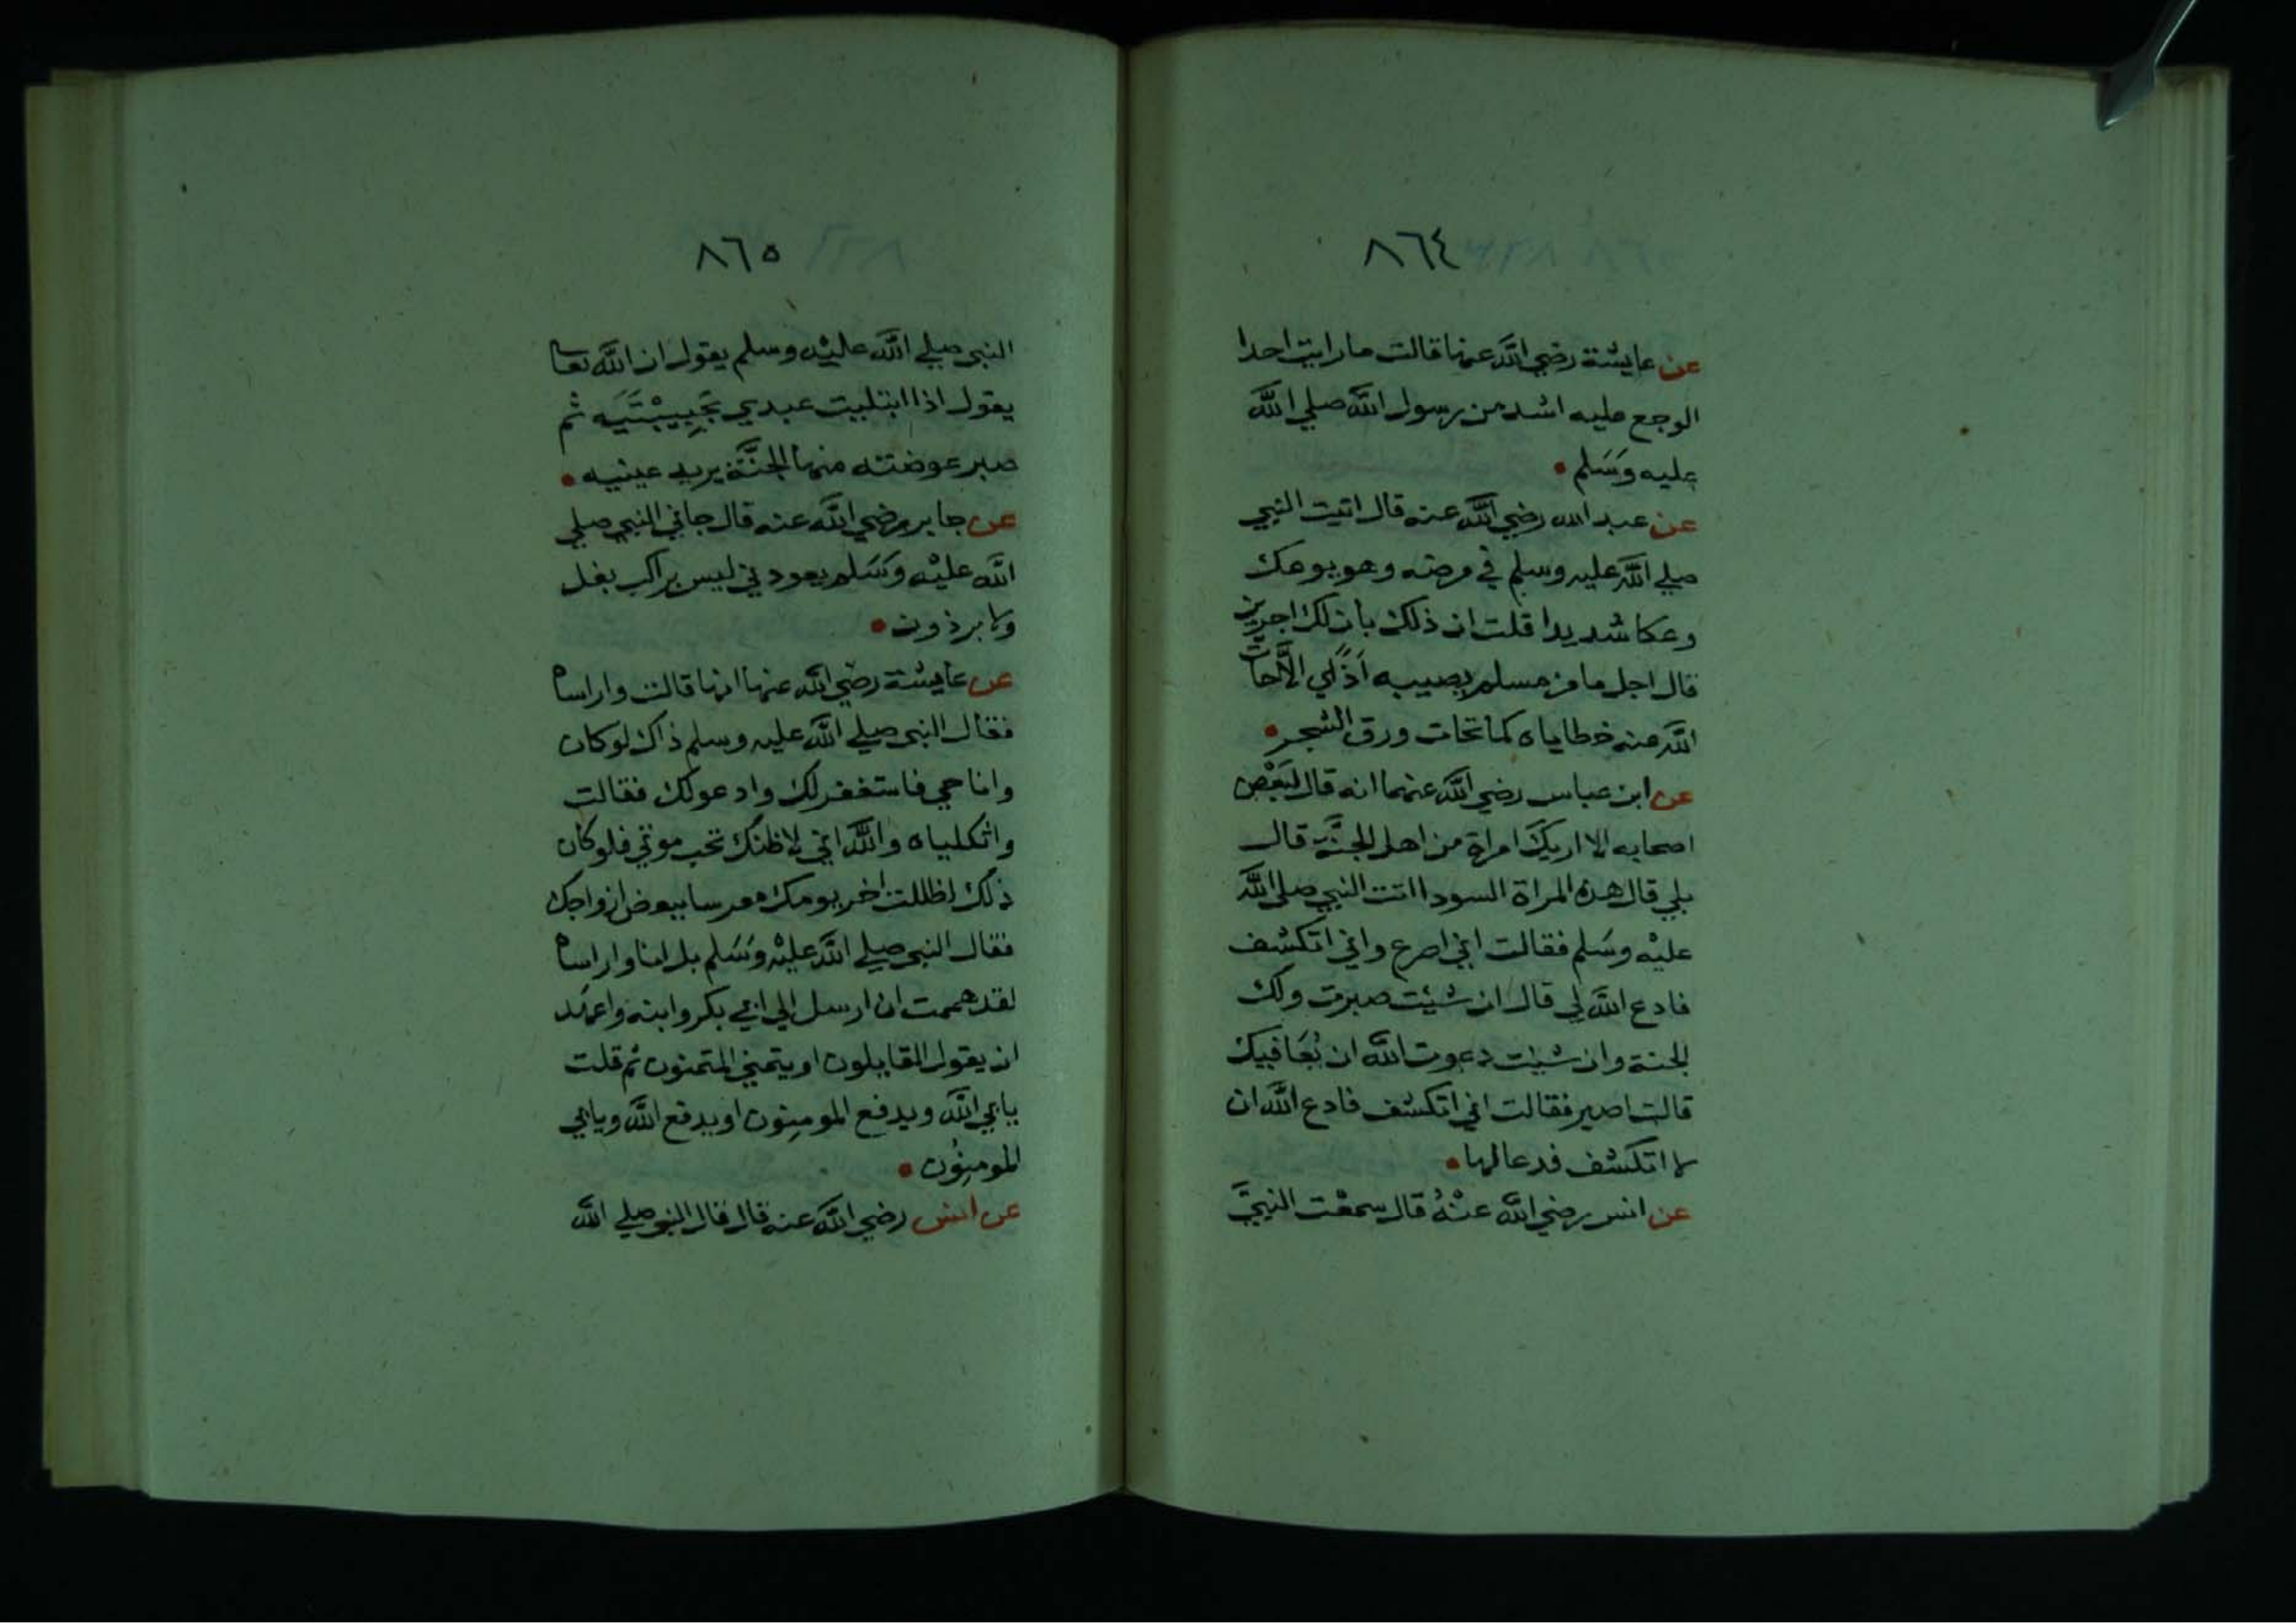 ٨٦٤
عن عايشة رضي الله عنها قالت ما رايت احدا
الوجع عليه اشد من رسول الله صلي الله
عليه وَسَلم
عن عبد الله رضي الله عنه قال اتيت النبي
صلي الله عليه وسلم في مرضه وهو يوعك
وعكا شديدا قلت ان ذلك بان لك اجرين
قال اجل ما من مسلم يصيبه اذًي الاَّحات
الله عنه خطاياه كما تحات ورق الشجر
عن ابن عباس رضي الله عنهما انه قال لبَعْض
اصحابه الا اريكَ امراة من اهل الجنَّة قال
بلي قال هذه المراة السودا اتت النبي صلي الله
عليْه وسَلم فقالت اني اصرع واني اتكشف
فادع الله لي قال ان شيْت صبرت ولك
الجنة وان شيت دعوت الله ان يُعَافيك
قالت اصبر فقالت اني اتكشف فادع الله ان
لا اتكشف فدعا لها
عن انس رضي الله عنْهُ قال سمعْت النبيَّ
٨٦٥
النبي صلي الله عليْه وسلم يقول ان الله تعا
يقول اذا ابتليت عبدي بحَبِيبْتَيَه ثم
صبر عوضته منهما الجنَّة يريد عينيه
عن جابر رضي الله عنه قال جاني النبي صلي
الله عليْه وَسَلم يعودني ليس براكب بغل
ولا برذون
عن عايشة رضي الله عنها انها قالت واراساه
فقال النبي صلي الله عليه وسلم ذاك لو كان
وانا حي فاستغفر لك وادعو لك فقالت
واثكلياه والله اني لاظنك تحب موتي فلو كان
ذلك لظللت اخر يومك معرسا ببعض ازواجك
فقال النبي صلي الله عليْه وَسَلم بل انا واراساه
لقد هممت ان ارسل الي ابي بكر وابنه واعهَد
ان يقول القايلون او يتمني المتمنون ثم قلت
يابي الله ويدفع المومنون او يدفع الله ويابي
المومنُون
عن انس رضي الله عنه قال قال النبي صلي الله